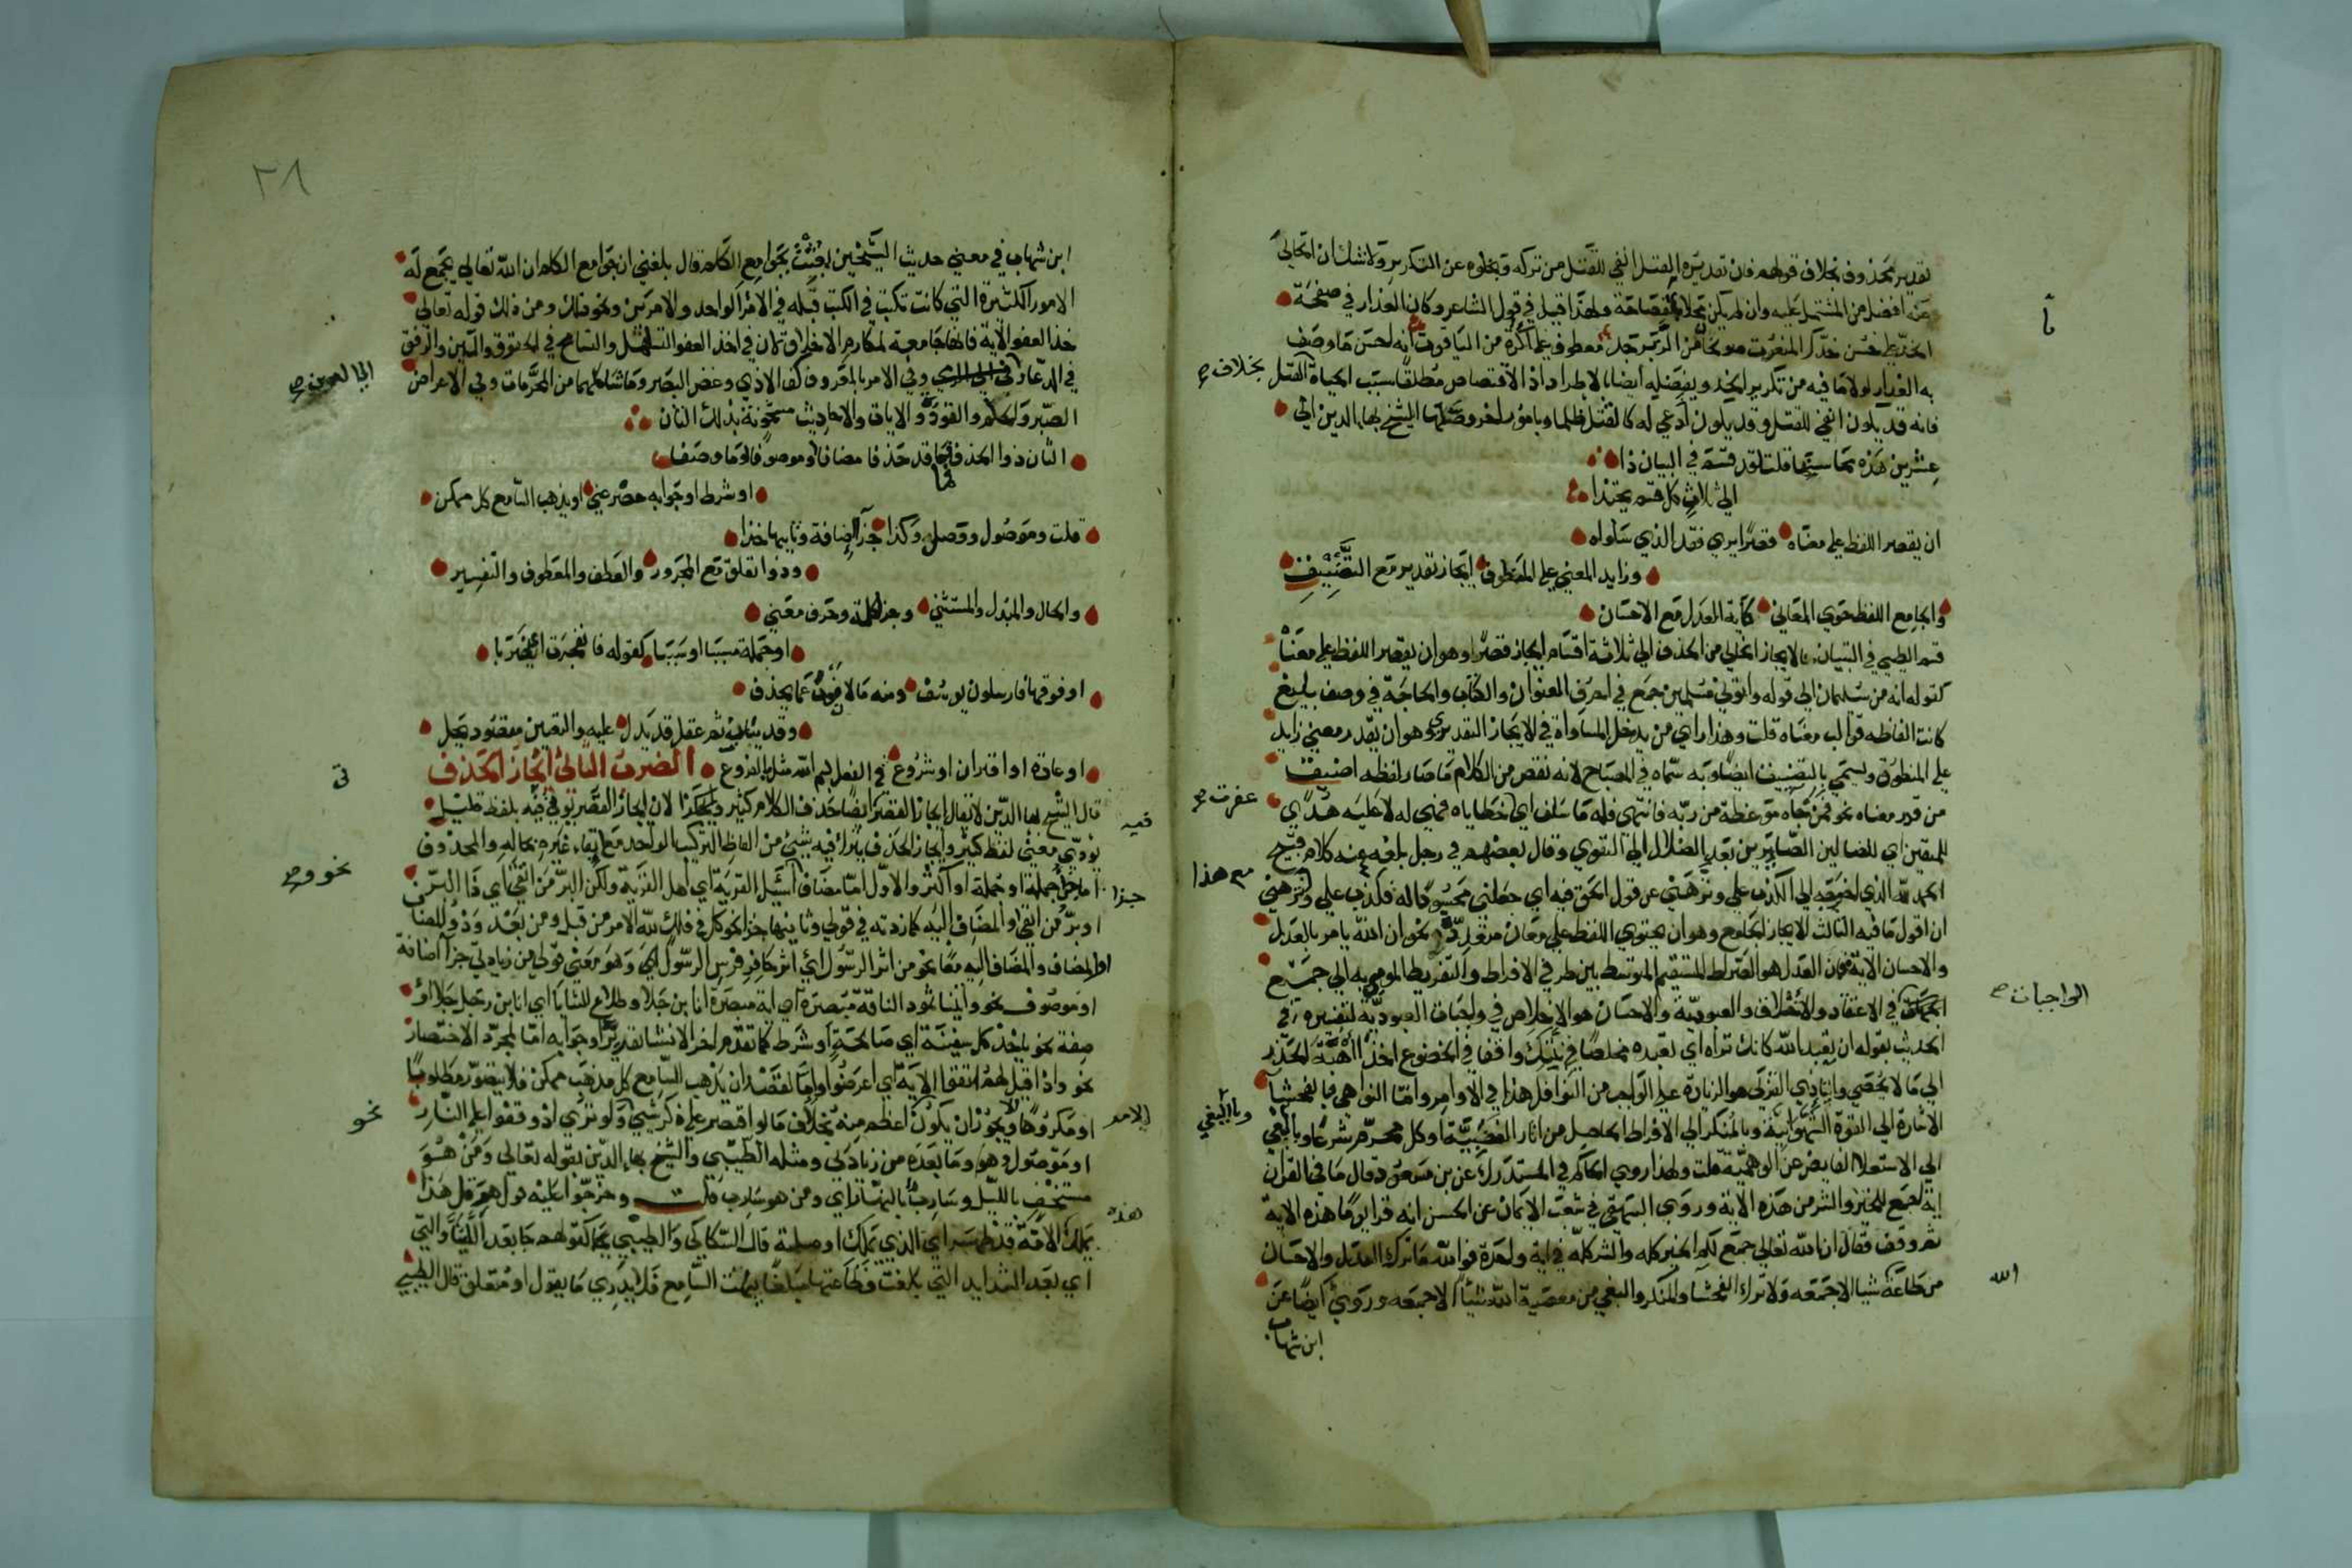 تقدير محذوف بخلاف قولهم فان تقديره القتل انفي للقتل من تركه وبخلوه عن التكرير ولا شك ان الخالي
عنه افضل من المشتمل عليه وان لم يكن مخلا بالفصاحة ولهذا قيل في قول الشاعر وكان العذار في صفحة
الخد
به العذار لولا ما فيه من تكرير الخد وبفضله ايضا بالاطراد اذ الاقتصاص مطلقا سبب الحياة القتل
بخلاف
فانه قد يكون انفي للقتل وقد يكون ادعي له كالقتل ظلما وبامور اخر وصلها الشيخ بها الدين الي
عشرين هذه محاسنها قلت لقد قسم في البيان ذا
الي ثلاث كل قسم يحتذا
ان يقصر اللفظ علي معناه قصر ايري فقد الذي سلواه
وزايد المعني علي المنطوق ايجاز تقدير مع التضييق
والجامع اللفظ حوي المعاني كاية العدل مع الاحسان
قسم الطيبي في التبيان الايجاز الخالي من الحذف الي ثلاثة اقسام ايجاز قصر وهو ان يقصر اللفظ علي معناه
كقوله انه من سليمان الي قوله واتوني مسلمين جمع في احرف العنوان والكتاب والحاجة في وصف بليغ
كانت الفاظه قوالب معناه قلت وهذا راي من يدخل المساواة في الايجاز التقديري وهو ان يقدر معني زايد
علي المنطوق ويسمي بالتضييق ايضا وبه سماه في المصباح لانه نقص من الكلام ما صار لفظه اضيق
من قدر معناه نحو فمن جاه موعظة من ربه فانتهي فله ما سلف اي خطاياه غفرت فهي له لا عليه هدي
للمتقين اي للضالين الصايرين بعد الضلال الي التقوي وقال بعضهم في رجل بلغه عنه كلام قبيح
الحمد لله الذي احوجه الي الكذب علي ونزهني عن قول الحق فيه اي
مع هذا
ان اقول ما فيه الثالث الايجاز الجامع وهو ان يحتوي اللفظ علي معان متعددة نحو ان الله يامر بالعدل
والاحسان الاية فان العدل هو الصراط المستقيم المتوسط بين طرفي الافراط والتفريط المومي به الي جميع
الواجبات
في الاعتقاد والاخلاق والعبودية والاحسان هو الاخلاص في واجبات العبودية لتفسيره في
الحديث بقوله ان تعبد الله كانك تراه اي تعبده مخلصا في نيتك واقفا في الخضوع اخذا اهبة الحذر
الي ما لا يحصي وايتاء ذي القربي هو الزيادة علي الواجب من النوافل هذا في الاوامر واما النواهي فبالفحشا
الاشارة الي القوة الشهوانية وبالمنكر الي الافراط الحاصل من اثار الغضبية او كل محرم شرعا وبالبغي
وبالبغي
الي الاستعلا الفايض عن الوهمية قلت ولهذا روي الحاكم في المستدرك عن بن مسعود قال ما في القران
اية اجمع للخير والشر من هذه الاية وروي البيهقي في شعب الايمان عن الحسن انه قرا يوما هذه الاية
ثم وقف فقال ان الله تعالي جمع لكم الخير كله والشر كله في اية واحدة فوالله ما ترك العدل والاحسان
من طاعة الله شيا الا جمعه ولا ترك الفحشا والمنكر والبغي من معصية الله شيئا الا جمعه وروي ايضا عن
ابن شهاب
٢٨
ابن شهاب في معني حديث الشيخين بعثت بجوامع الكلم قال بلغني ان جوامع الكلم ان الله تعالي يجمع له
الامور الكثيرة التي كانت تكتب في الكتب قبله في الامر الواحد والامرين ونحو ذلك ومن ذلك قوله تعالي
خذ العفو الاية فانها جامعة لمكارم الاخلاق لان في اخذ العفو التساهل والتسامح في الحقوق واللين والرفق
في الدعاء وفي الامر بالمعروف كف الاذي وغض البصر وما شاكلهما من المحرمات وفي الاعراض
الصبر والحلم والتودد والايات والاحاديث مشحونة بذلك
الثان ذو الحذف فما قد حذفا مضافا او موصوفا او ما وصفا
او شرط او جوابه حصر عني او يذهب السامع كل ممكن
قلت وموصول ووصل وكذا جزا اضافة وثانيها خذا
وذو تعلق مع المجرور والعطف والمعطوف والتفسير
والحال والمبدل والمستثني وجزء كلمة وحرف معني
او جملة مسببا او سببا كقوله فانفجرت اي ضربا
او فوقها فارسلون يوسف ومنه ما لا عما يحذف
وقد ثم عقل قد يدل عليه والتعيين مقصود يجل
او عادة او اقتران او شروع في الفعل بسم الله مثل بالفروع الضرب الثاني ايجاز الحذف
قال الشيخ بها الدين لا يقال ايجاز القصر ايضا حذف الكلام كثير لان ايجاز القصر يوتي فيه بلفظ قليل
يودي معني لفظ كثير وايجاز الحذف يترك فيه شي من الفاظ التركيب الواحد مع ابقاء غيره بحاله والمحذوف
نحو
اما جزء جملة او جملة او اكثر والاول اما مضاف اسئل القرية اي اهل القرية ولكن البر من اتقي اي ذا البر
او بر من اتقي او المضاف اليه كما زدته في قولي وثانيها خذا نحو كل في فلك لله الامر من قبل ومن بعد
او المضاف والمضاف اليه معا نحو من اثر الرسول اي اثر حافر فرس الرسول اي وهو معني قولي من زيادتي جزا اضافة
او موصوف نحو واتينا ثمود الناقة مبصرة اي اية مبصرة انا بن جلا وطلاع الثنايا اي انا بن رجل جلا او
صفة نحو ياخذ كل سفينة اي صالحة او شرط كما تقدم اخر الانشا تقديره او جوابه اما لمجرد الاختصار
نحو واذا قيل لهم اتقوا الاية اي اعرضوا واما لقصد ان يذهب السامع كل مذهب ممكن فلا يتصور مطلوبا
او مكروها الا ويجوز ان يكون الامر اعظم منه بخلاف ما لو اقتصر علي ذكر شي نحو ولو تري اذ وقفوا علي النار
او موصول وهو وما بعده من زيادتي ومثله الطيبي والشيخ بها الدين بقوله تعالي ومن هو
مستخف بالليل وسارب بالنهار اي ومن هو سارب قلت وخرجوا عليه قول هرقل هذا
يملك هذه الامة قد ظهر اي الذي يملك او صلة قال السكاكي والطيبي كقولهم جا بعد اللتيا والتي
اي بعد الشدايد التي بلغت فظاعتها مبلغا يبهت السامع فلا يدري ما يقول او متعلق قال الطيبي